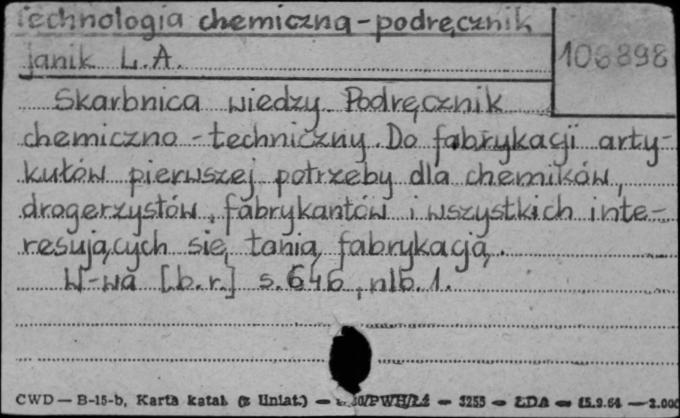 Technologia chemiczna - podręcznik
106898
Janik L.A.
Skarbnica wiedzy. Podręcznik
chemiczno - techniczny. Do fabrykacji arty-
kułów pierwszej potrzeby dla chemików,
drogerzystów, fabrykantów i wszystkich inte-
resujących się tanią fabrykacją.
W-wa [b.r.] s. 646, nlb. 1.
CWD — B-15-b, Karta katal. (z Uniat.) — /PWH/Łź — 3253 — ŁDA — 15.9.64 — 2.000